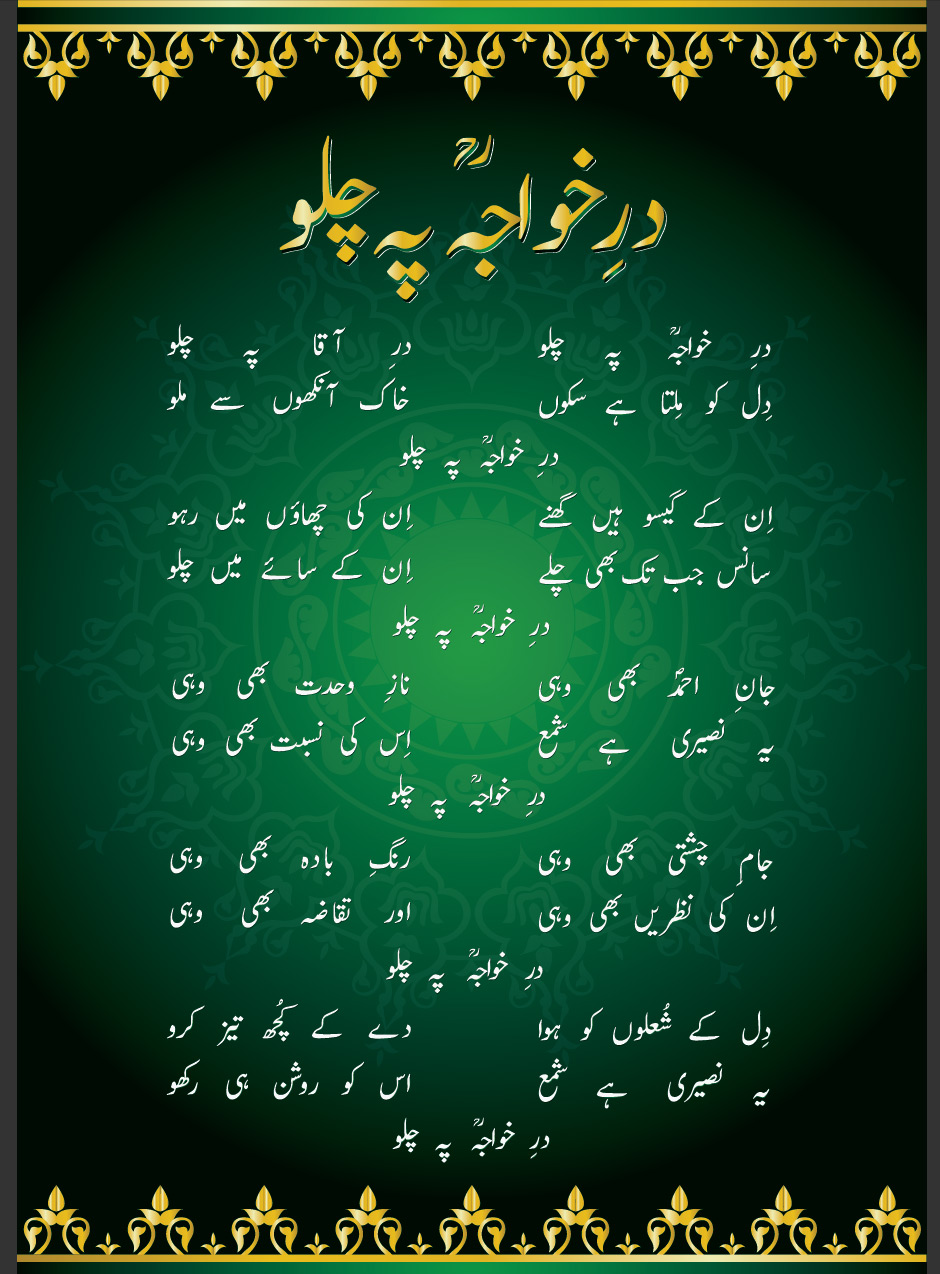 درِ خواجہؒ پہ چلو
درِ خواجہؒ پہ چلو درِ آقا پہ چلو
دِل کو مِلتا ہے سکوں خاک آنکھوں سے ملو
درِ خواجہؒ پہ چلو
اِن کے گیسو ہیں گھنے اِن کی چھاؤں میں رہو
سانس جب تک بھی چلے اِن کے سائے میں چلو
درِ خواجہؒ پہ چلو
جانِ احمدؐ بھی وہی نازِ وحدت بھی وہی
یہ نصیری ہے شمع اِس کی نسبت بھی وہی
درِ خواجہؒ پہ چلو
جامِ چشتی بھی وہی رنگِ بادہ بھی وہی
اِن کی نظریں بھی وہی اور تقاضہ بھی وہی
درِ خواجہؒ پہ چلو
دِل کے شُعلوں کو ہوا دے کے کُچھ تیز کرو
یہ نصیری ہے شمع اس کو روشن ہی رکھو
درِ خواجہؒ پہ چلو